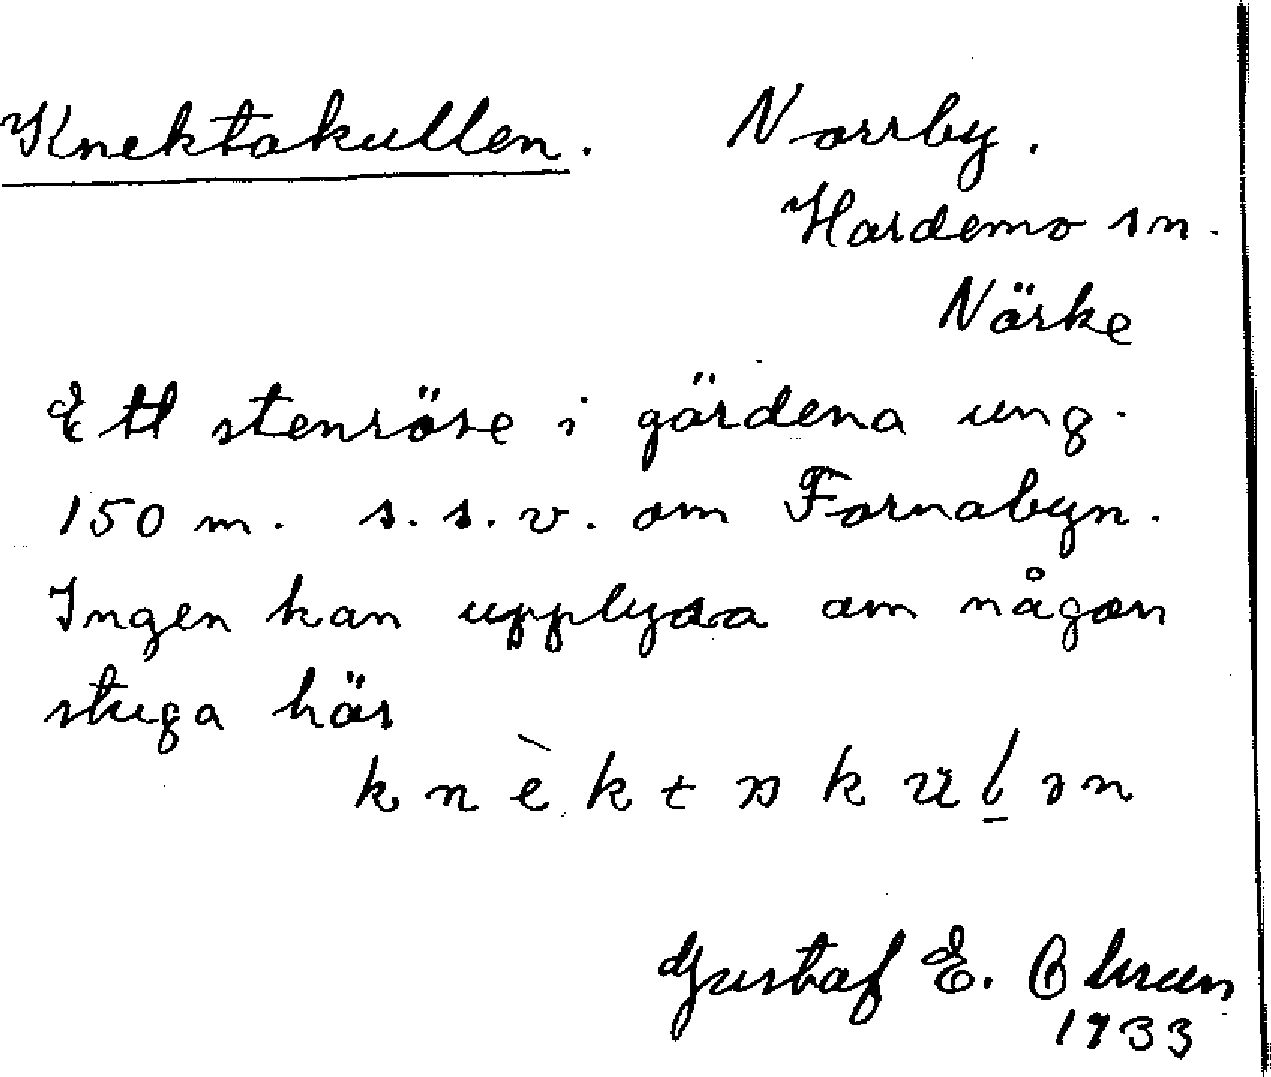 Knektakullen. Norrby.
Hardemo sn.
Närke
Ett stenröse i gärdena ung.
150 m. s.s.v. om Fornabyn.
Ingen kan upplysa om någon
stuga här
Gustaf E.
1933